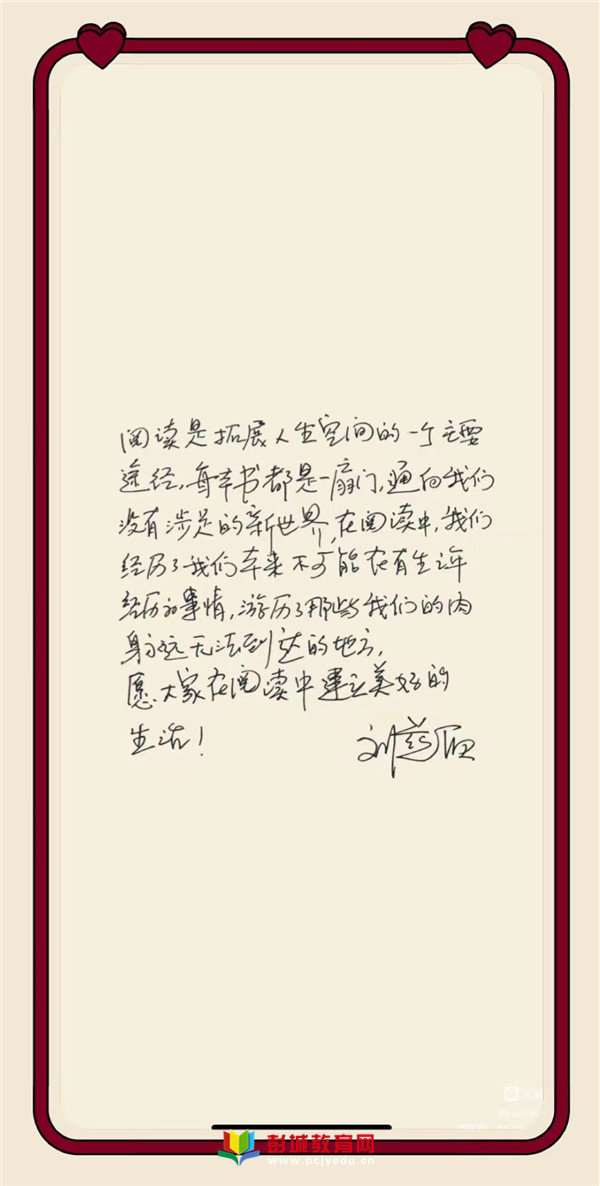 阅读是拓展人生空间的一个主要
途径,每本书都是一扇门,通向我们
没有涉足的新世界,在阅读中,我们
经历了我们本来不可能在有生之年
经历的事情,游历了那些我们的肉
身永远无法到达的地方,
愿大家在阅读中建立美好的
生活!
刘慈欣
彭城教育网
www.pcjyedu.cn